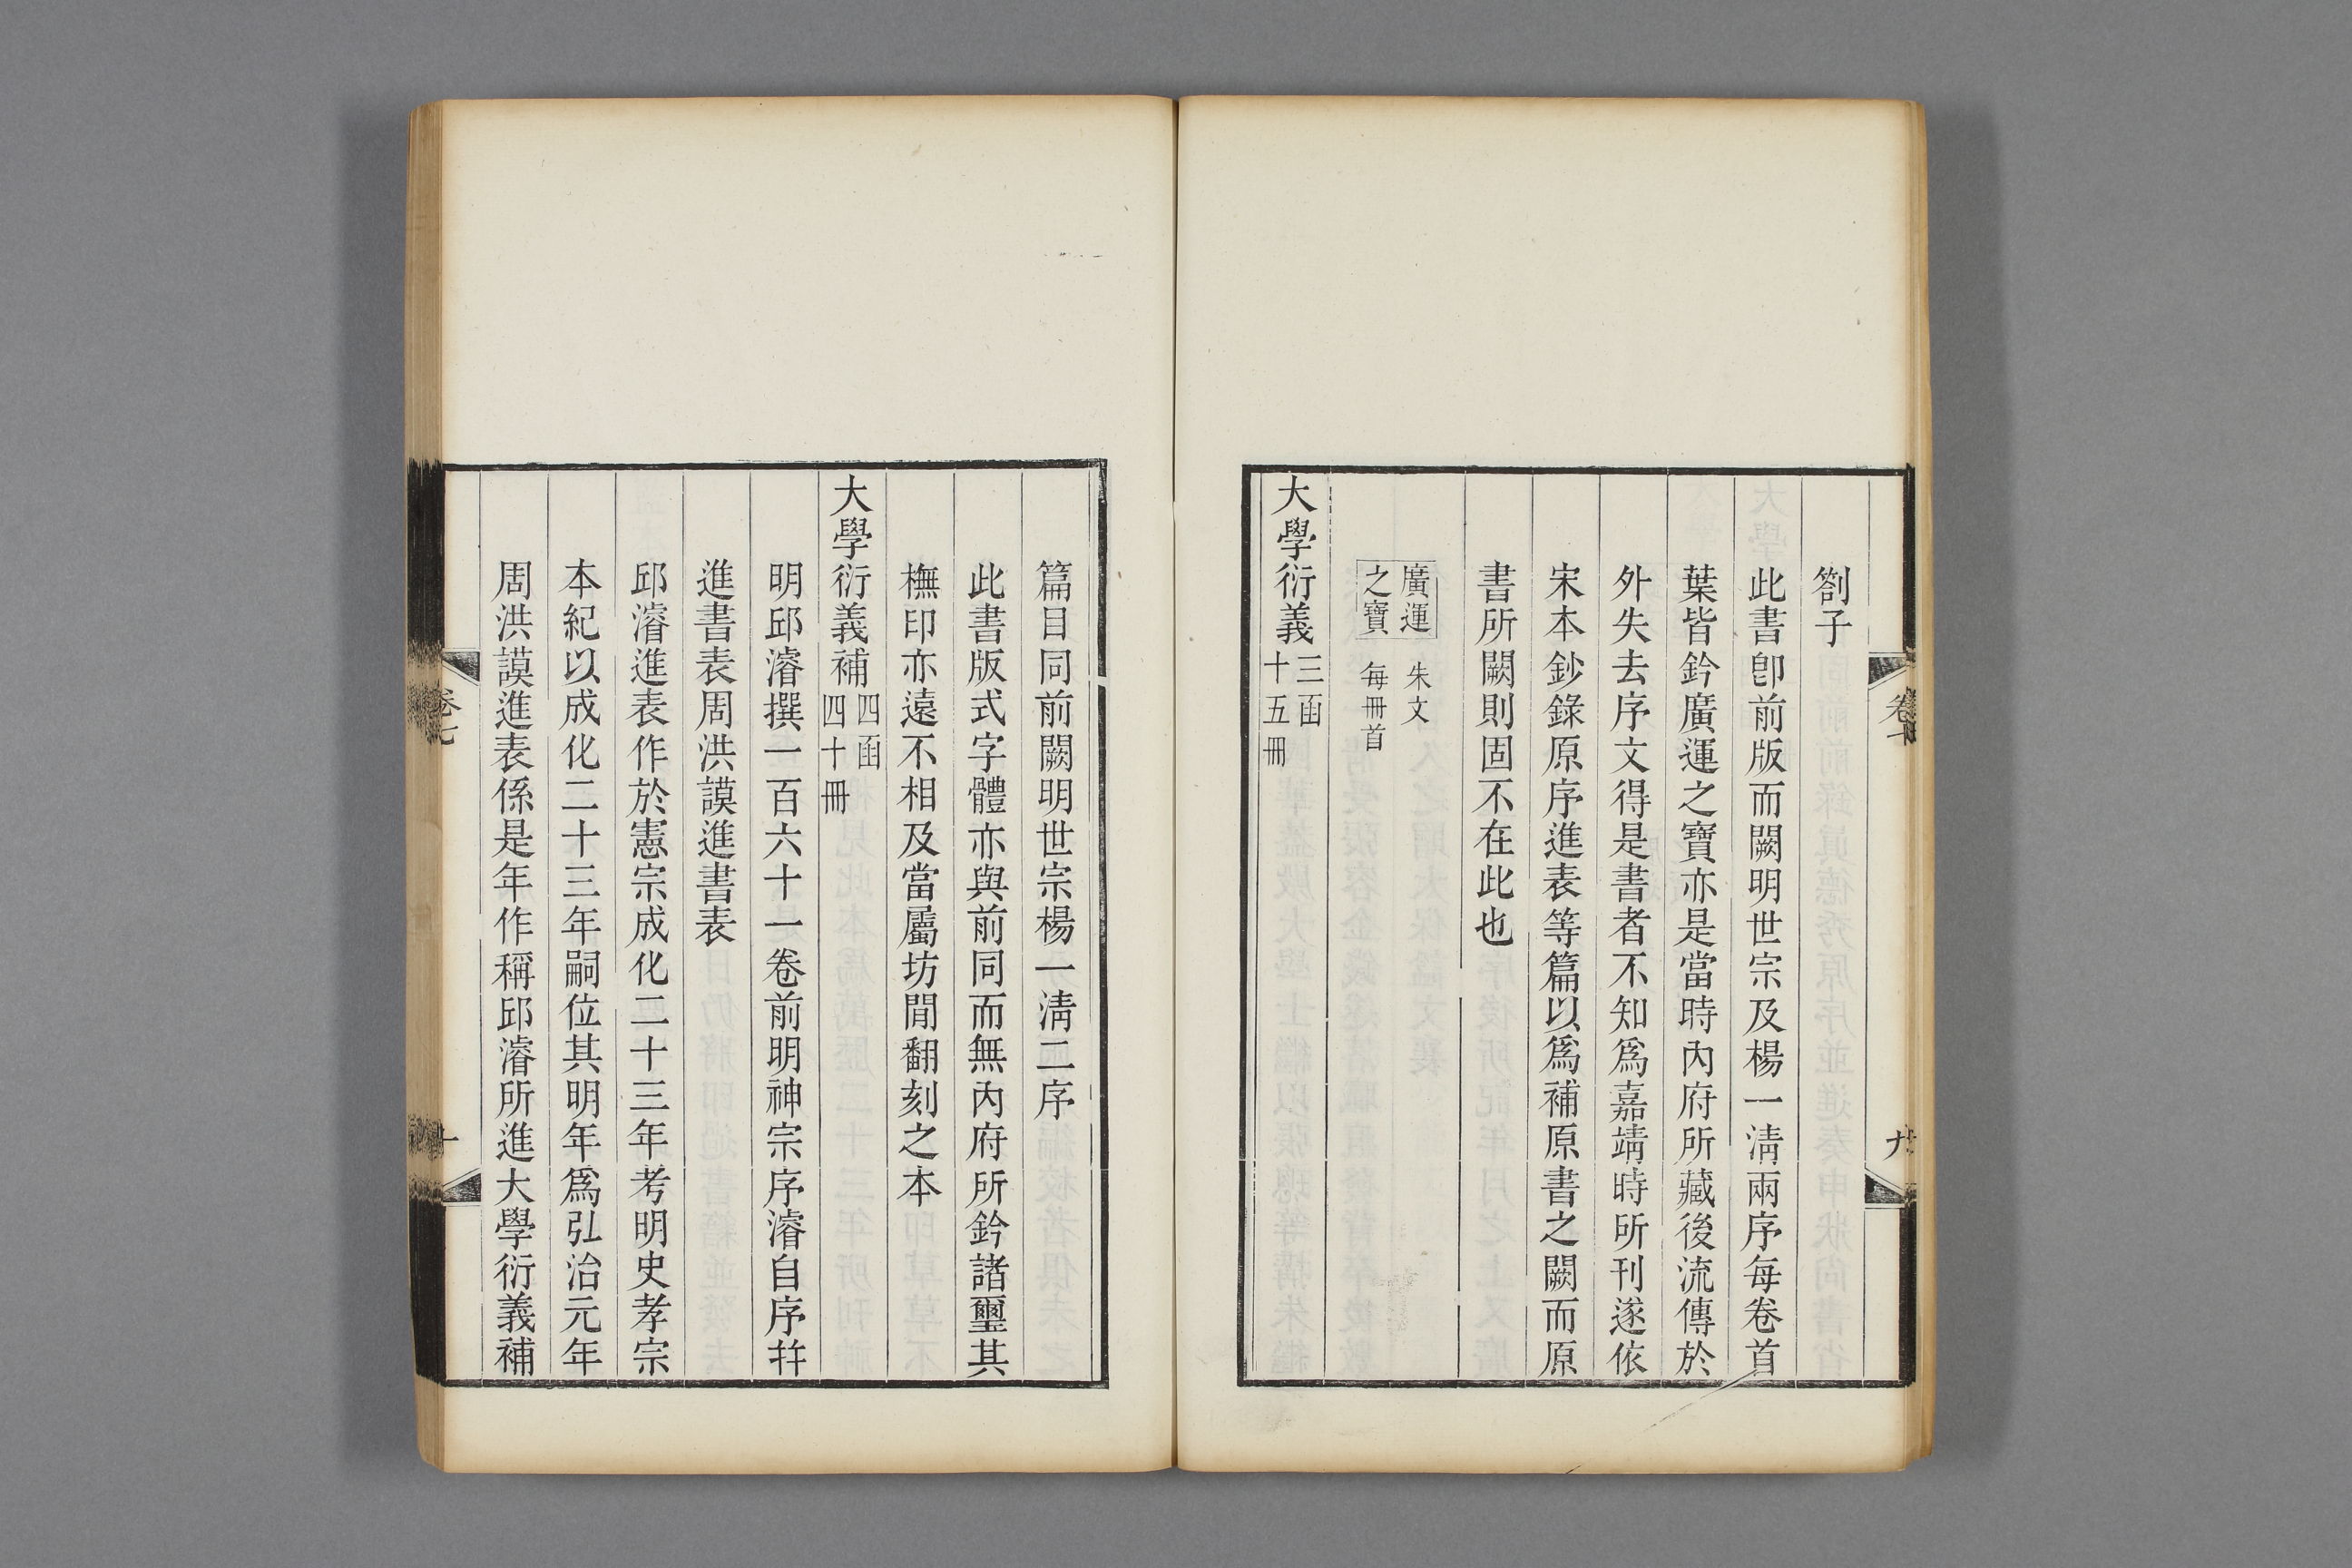 劄子
此書卽前版而闕明世宗及楊一淸兩序每卷首
葉皆鈐廣運之寶亦是當時內府所藏後流傳於
外失去序文得是書者不知爲嘉靖時所刊遂依
宋本鈔錄原序進表等篇以爲補原書之闕而原
書所闕則固不在此也
廣運
之寶
朱文
每冊首
大學衍義
三函
十五冊
篇目同前闕明世宗楊一淸二序
此書版式字體亦與前同而無內府所鈐諸璽其
橅印亦遠不相及當屬坊閒翻刻之本
大學衍義補
四函
四十冊
明邱濬撰一百六十一卷前明神宗序濬自序幷
進書表周洪謨進書表
邱濬進表作於憲宗成化二十三年考明史孝宗
本紀以成化二十三年嗣位其明年爲弘治元年
周洪謨進表係是年作稱邱濬所進大學衍義補
卷七